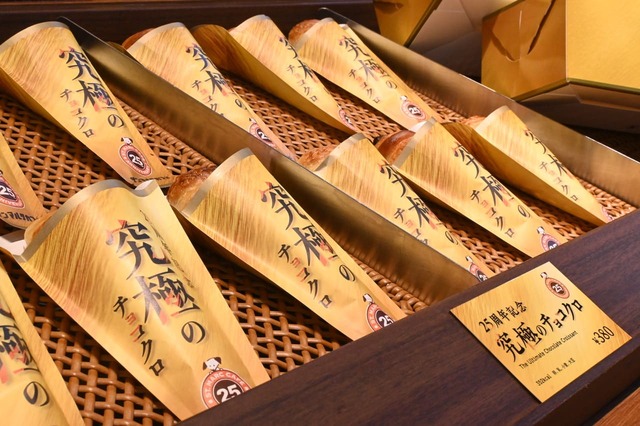 究極の
チョコクロ
究極の
チョコクロ
究極の
チョコクロ
究極の
チョコクロ
究極の
チョコクロ
究極の
チョコクロ
究極の
チョコクロ
究極の
チョコクロ
究極の
チョコクロ
25
25
25
25周年記念
究極のチョコクロ
The Ultimate Chocolate Croissant
¥380